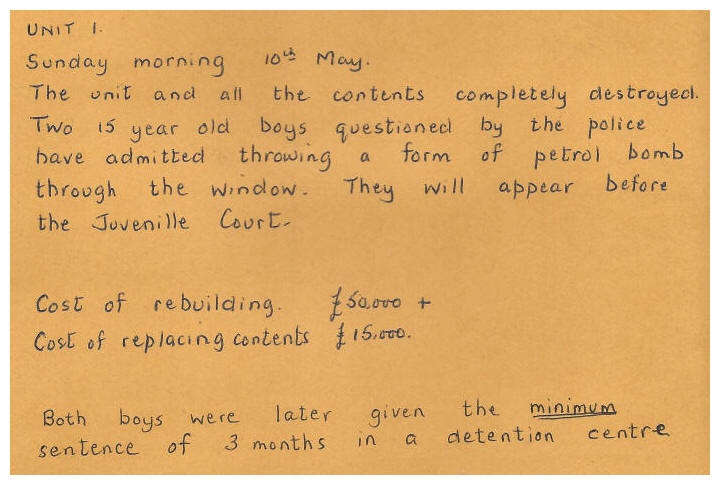 UNIT 1.
Sunday morning 10th May.
The unit and all the contents completely destroyed.
Two 15 year old boys questioned by the police
have admitted throwing a form of petrol bomb
through the window. They will appear before
the Juvenille Court.
Cost of rebuilding. £50,000 +
Cost of replacing contents £15,000.
Both boys were later given the minimum
sentence of 3 months in a detention centre